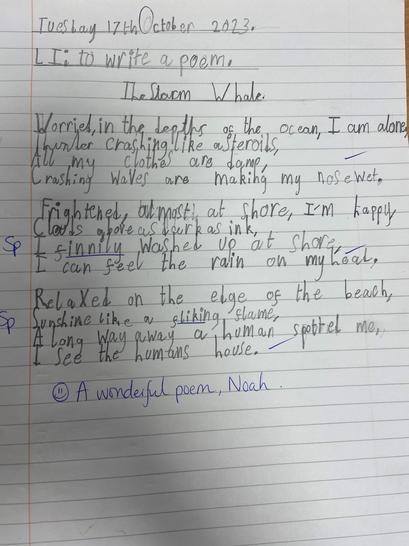 Tuesday 17th October 2023.
LI: to write a poem.
The Storm Whale.
Worried, in the depths of the ocean, I am alone,
thunder crashing like asteroids,
All my clothes are damp,
Crashing waves are making my nose wet.
Frightened, but most at shore, I'm happy,
Clouds above as dark as ink,
Sp I finnily washed up at shore,
I can feel the rain on my
Relaxed on the edge of the beach,
Sp Sunshine like a fliking flame,
A long way away a human spotted me,
I see the humans house.
A wonderful poem, Noah.